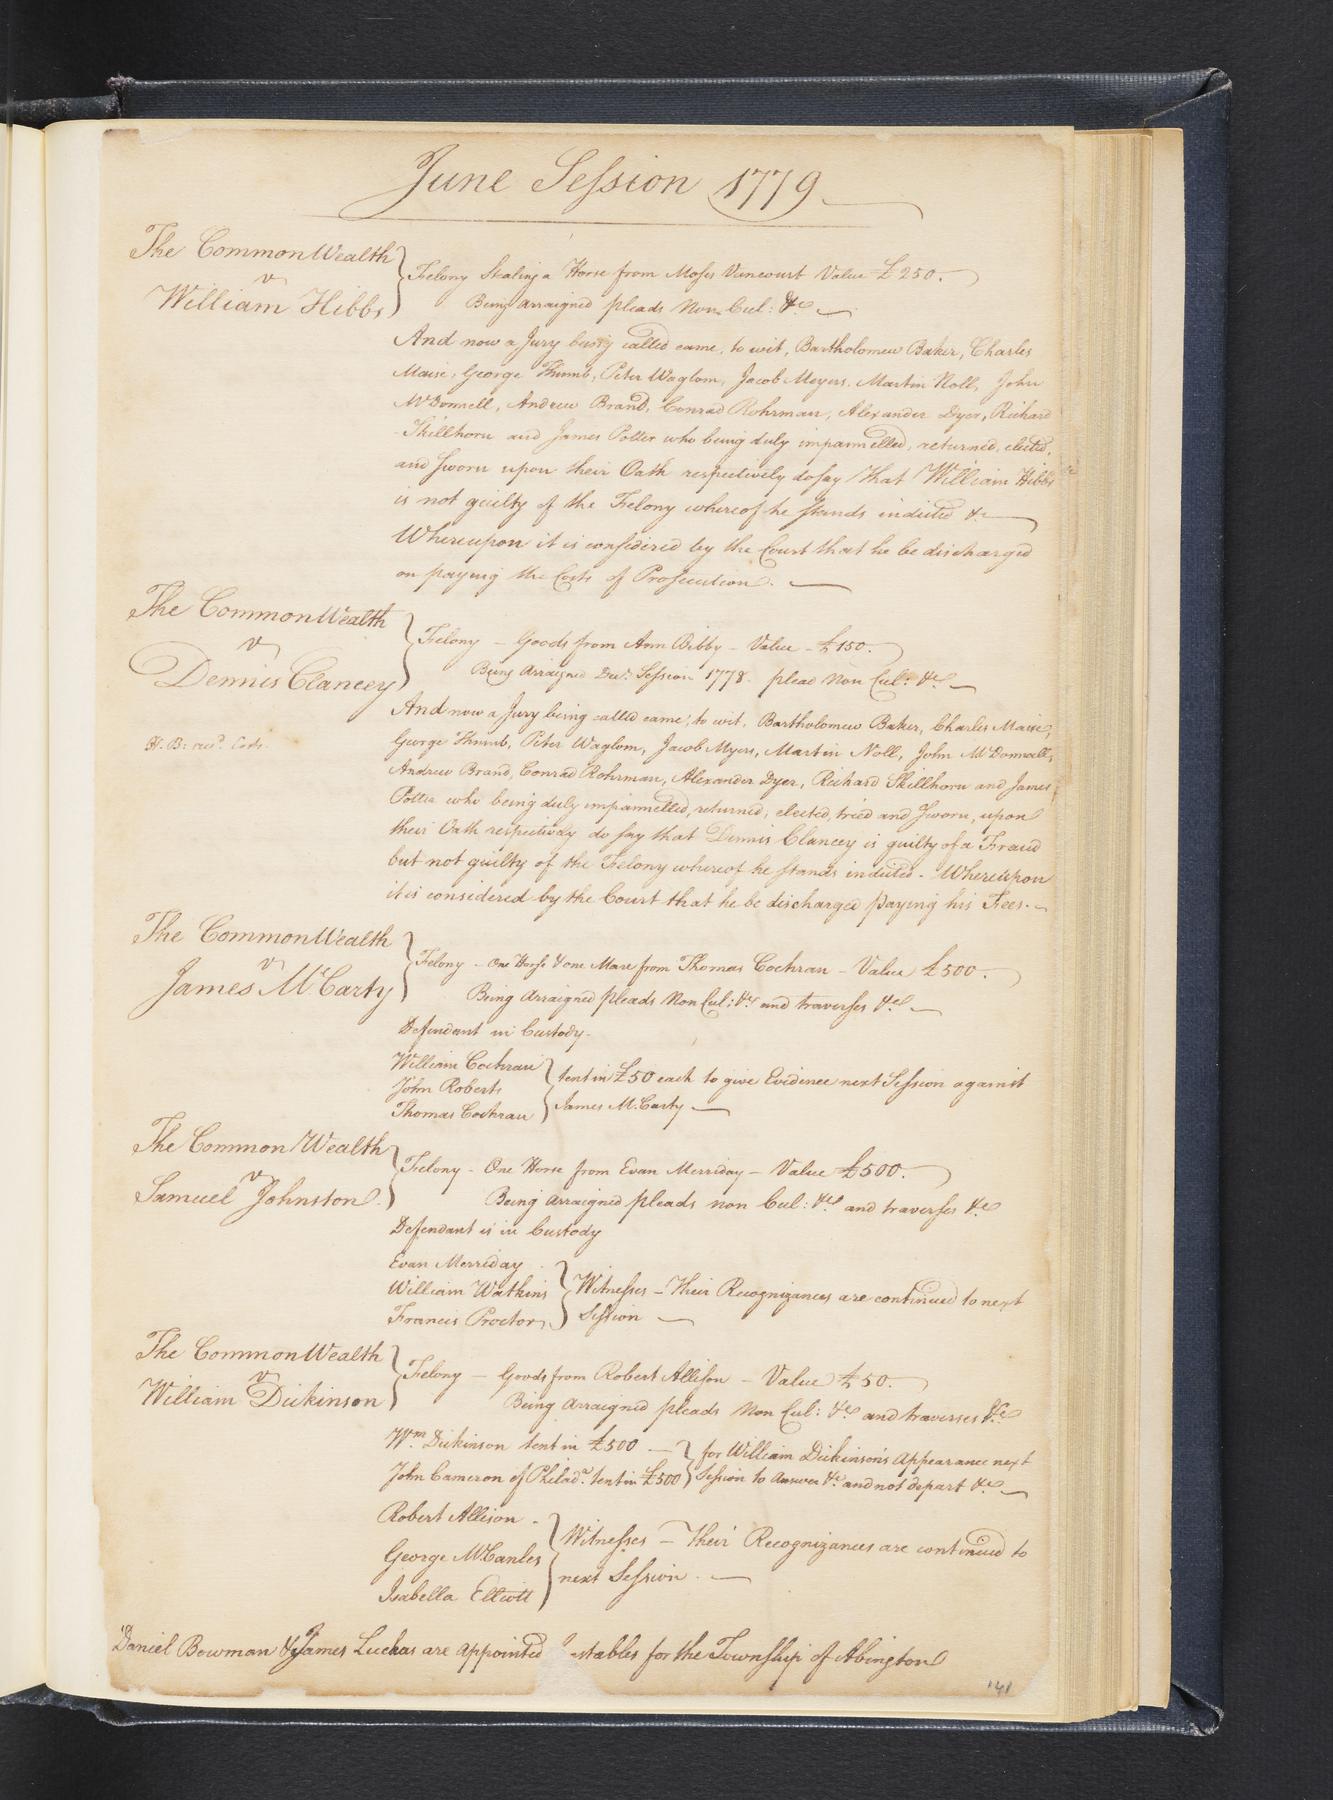 June Session 1779
The CommonWealth
v
William Hibbs
Felony Stealing a Horse from Moses Vancourt Value £250.
Being arraigned pleads Non Cul: &c
And now a Jury being called came, to wit, Bartholomew Baker, Charles
Maise, George Thumb, Peter Waglom, Jacob Meyers, Martin Noll, John
McDonnell, Andrew Brand, Conrad Rohrman, Alexander Dyer, Richard
Skillhorn and James Potter who being duly impannelled, returned, elected,
and sworn upon their Oath respectively do say that William Hibbs
is not guilty of the Felony whereof he stands indicted &c
Whereupon it is considered by the Court that he be discharged
on paying the Costs of Prosecution.
The CommonWealth
v
Dennis Clancey
Felony — Goods from Ann Bibby — Value — £150.
Being Arraigned Decr. Session 1778. plead Non Cul: &c
And now a Jury being called came, to wit, Bartholomew Baker, Charles Maise,
George Thumb, Peter Waglom, Jacob Myers, Martin Noll, John McDonnall,
Andrew Brand, Conrad Rohrman, Alexander Dyer, Richard Skillhorn and James
Potter who being duly impannelled, returned, elected, tried and sworn, upon
their Oath respectively do say that Dennis Clancey is guilty of a Fraud
but not guilty of the Felony whereof he stands indicted. Whereupon
it is considered by the Court that he be discharged paying his Fees.
The CommonWealth
v
James McCarty
Felony — One Horse & one Mare from Thomas Cochran — Value £500.
Being Arraigned pleads Non Cul: &c and traverses &c
Defendant in Custody.
William Cochran
John Roberts
Thomas Cochran
tent in £50 each to give Evidence next Session against
James McCarty
The Common Wealth
v
Samuel Johnston
Felony — One Horse from Evan Merriday — Value £500.
Being arraigned pleads non Cul: &c and traverses &c
Defendant is in Custody
Evan Merriday
William Watkins
Francis Proctor
Witnesses — Their Recognizances are continued to next
Session
The CommonWealth
v
William Dickinson
Felony — Goods from Robert Allison — Value £50.
Being Arraigned pleads Non Cul: &c and traverses &c
Wm Dickinson tent in £500
John Cameron of Philada. tent in £500
for William Dickinson's Appearance next
Session to answer &c and not depart &c
Robert Allison
George McCanles
Isabella Elliott
Witnesses — Their Recognizances are continued to
next Session.
Daniel Bowman & James Luckas are appointed stables for the Township of Abington
141